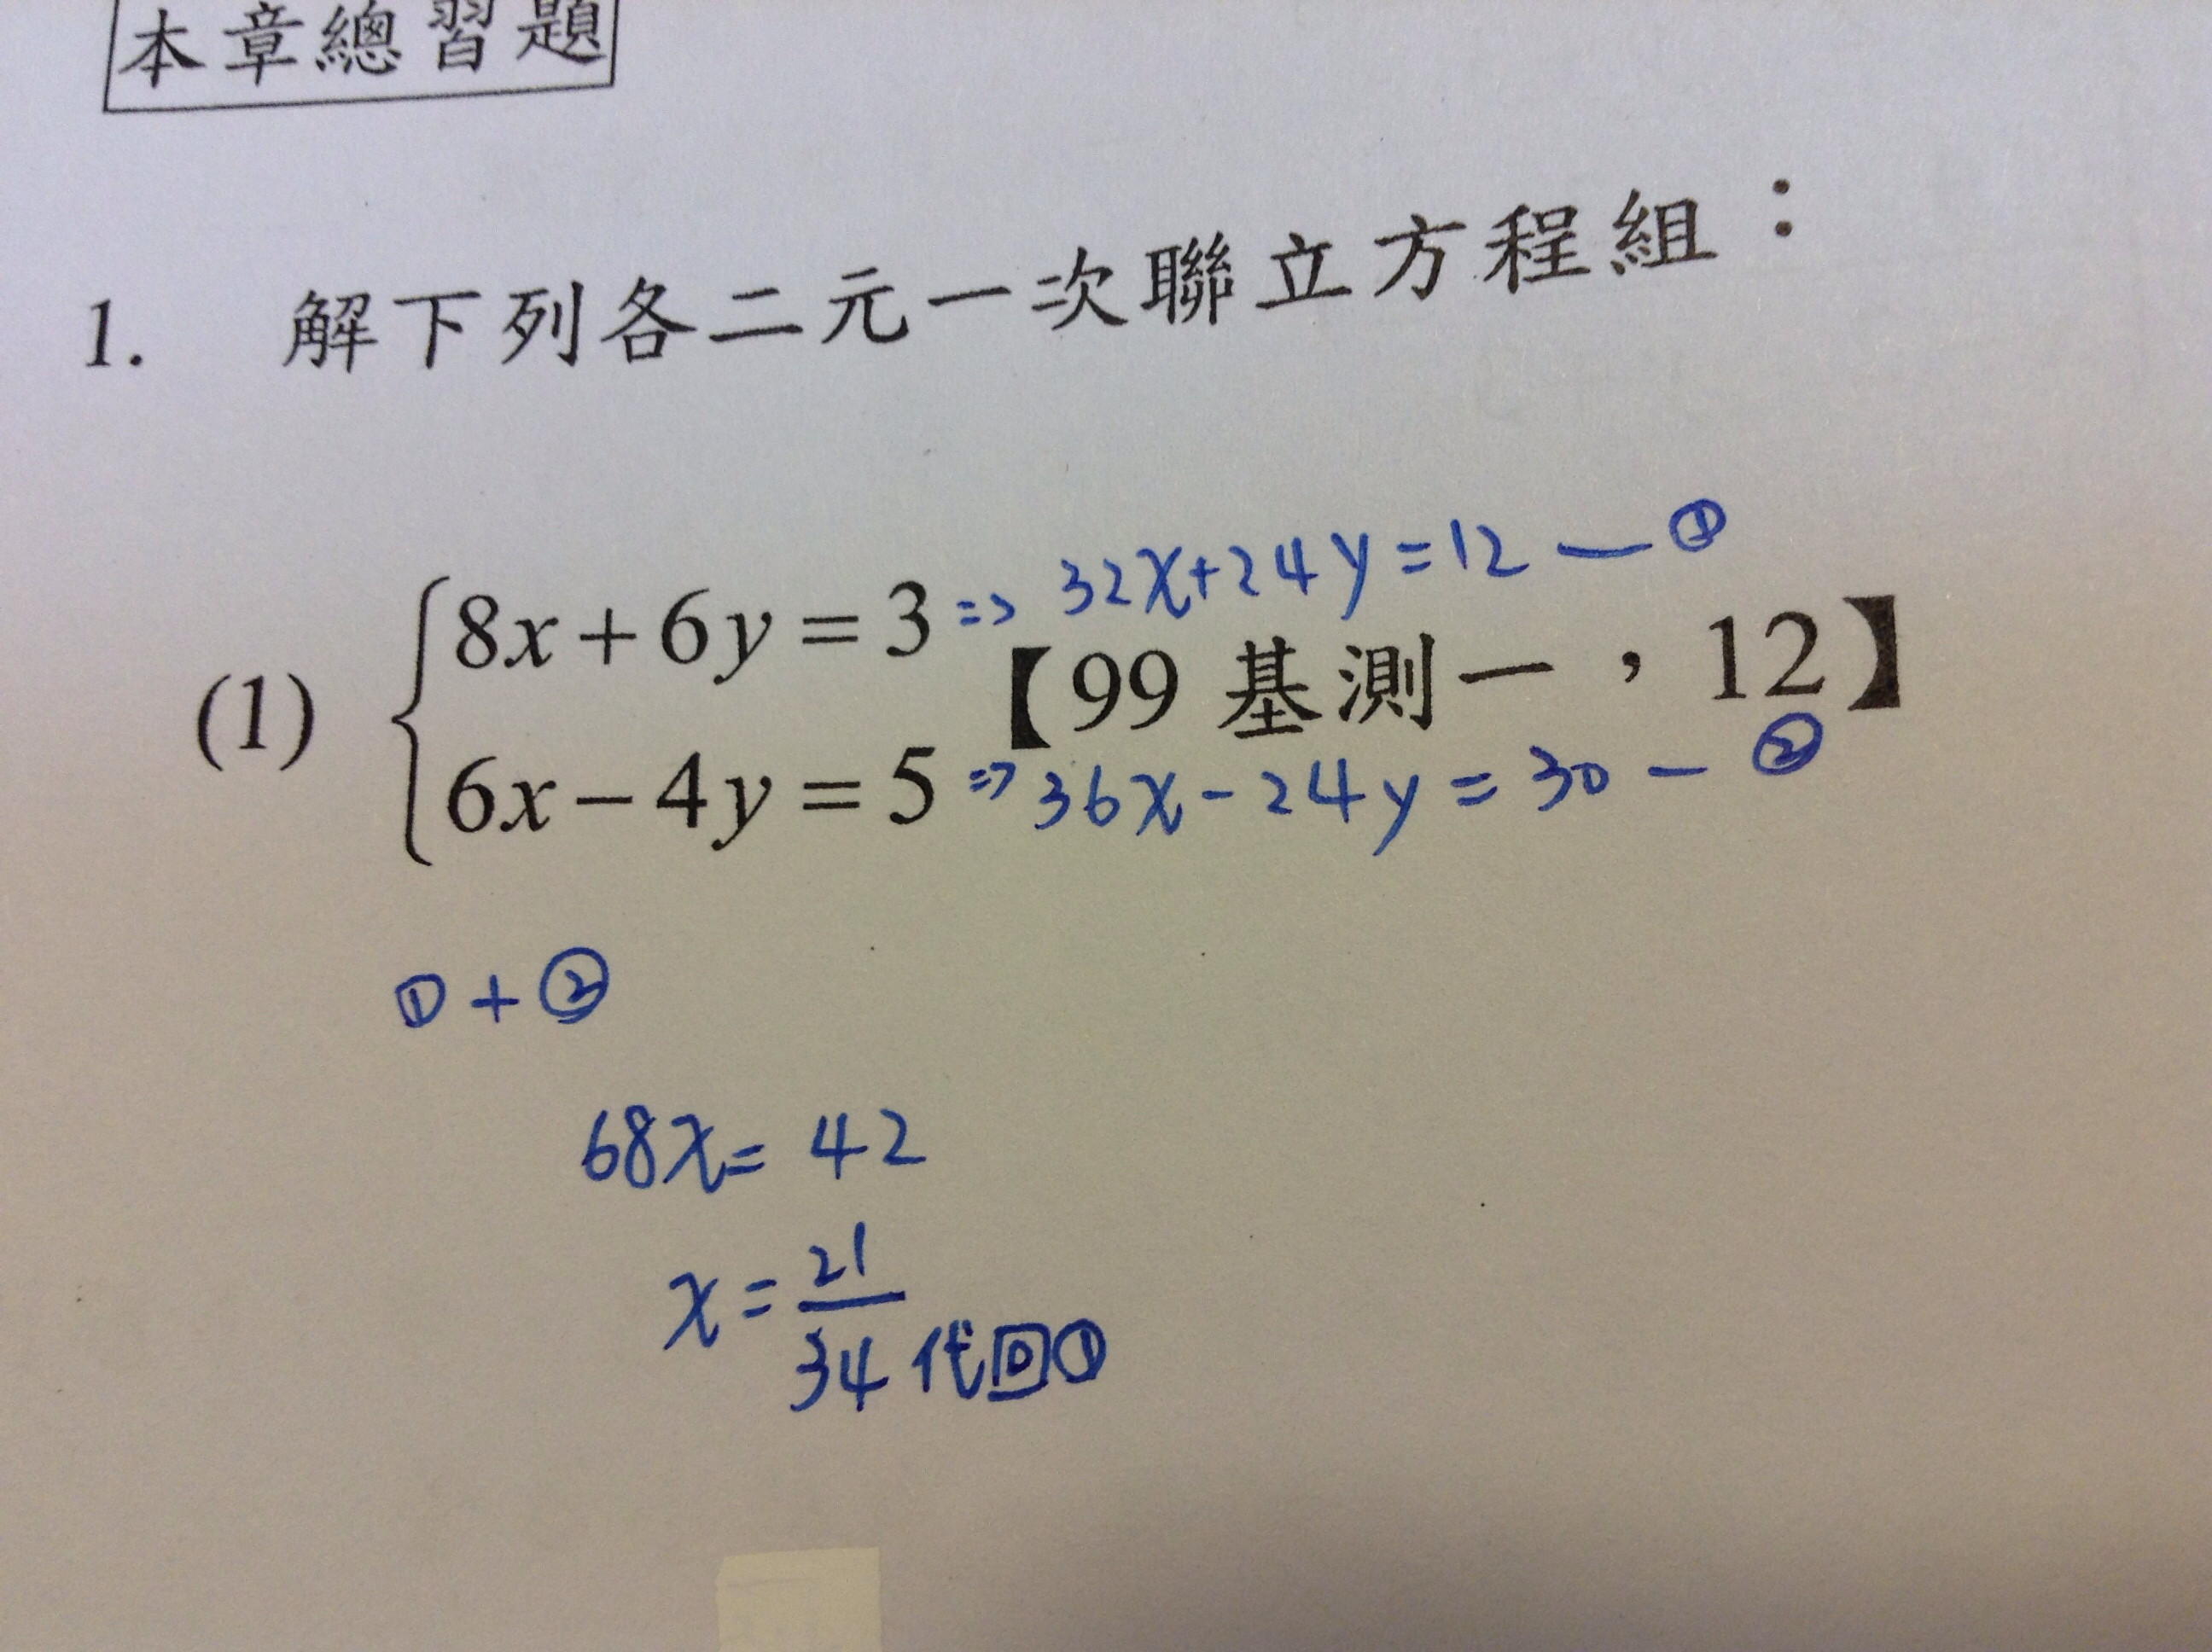 本章總習題
1. 解下列各二元一次聯立方程組：
8x+6y=3 => 32x+24y=12 — ①
(1) 【99 基測一，12】
6x-4y=5 => 36x-24y=30 - ②
① + ②
68x= 42
x=21/34 代回①